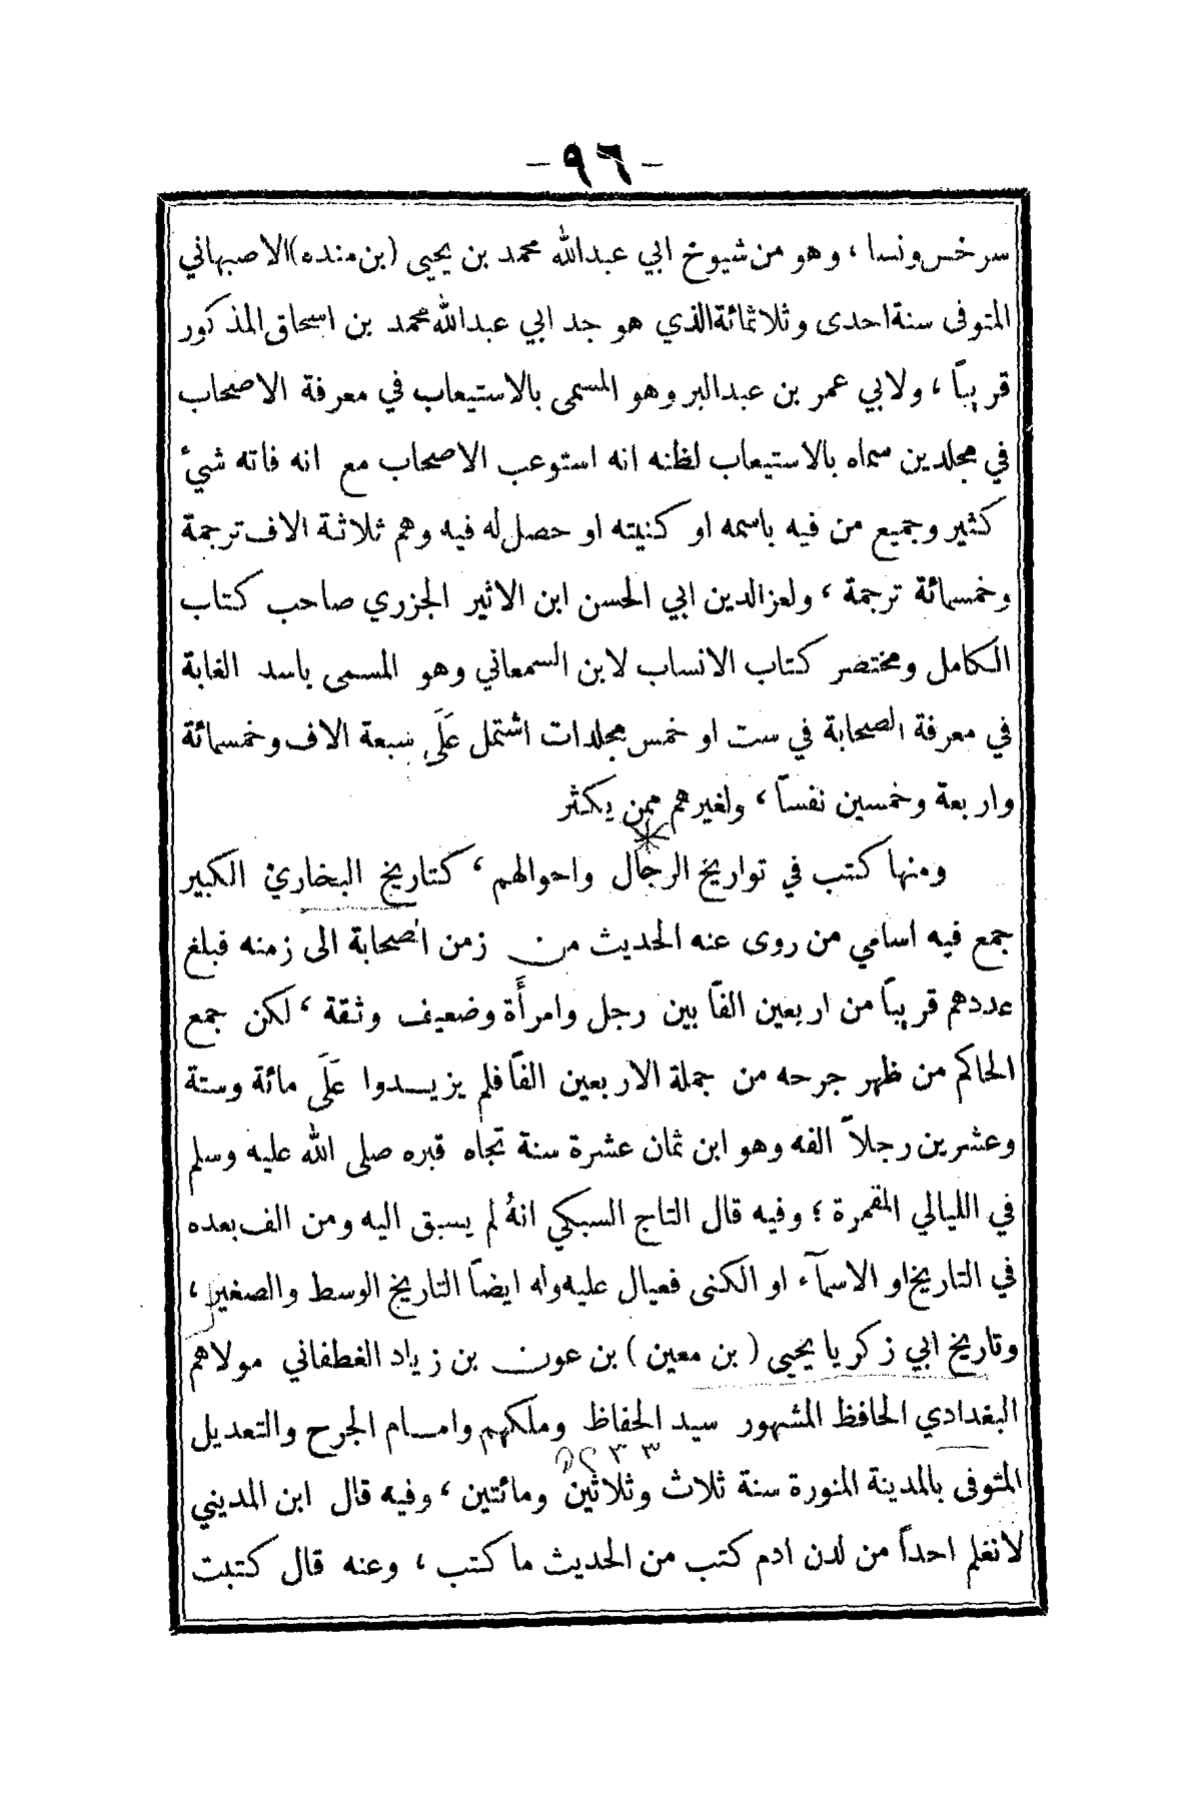 - ٩٦ -
سرخس ونسا ، وهو من شيوخ ابي عبدالله محمد بن يحيى (بن منده) الاصبهاني
المتوفى سنة احدى وثلاثمائة الذي هو جد ابي عبدالله محمد بن اسحاق المذكور
قريباً ، ولابي عمر بن عبدالبر وهو المسمى بالاستيعاب في معرفة الاصحاب
في مجلدين سماه بالاستيعاب لظنه انه استوعب الاصحاب مع انه فاته شيئ
كثير وجميع من فيه باسمه او كنيته او حصل له فيه وهم ثلاثة الاف ترجمة
وخمسمائة ترجمة ، ولعزالدين ابي الحسن ابن الاثير الجزري صاحب كتاب
الكامل ومختصر كتاب الانساب لابن السمعاني وهو المسمى باسد الغابة
في معرفة الصحابة في ست او خمس مجلدات اشتمل عَلَى سبعة الاف وخمسمائة
واربعة وخمسين نفساً ، ولغيرهم ممن يكثر
ومنها كتب في تواريخ الرجال واحوالهم ، كتاريخ البخاري الكبير
جمع فيه اسامي من روى عنه الحديث من زمن الصحابة الى زمنه فبلغ
عددهم قريباً من اربعين الفاً بين رجل وامرأَة وضعيف وثقة ، لكن جمع
الحاكم من ظهر جرحه من جملة الاربعين الفاً فلم يزيدوا عَلَى مائة وستة
وعشرين رجلاً الفه وهو ابن ثمان عشرة سنة تجاه قبره صلى الله عليه وسلم
في الليالي المقمرة ؛ وفيه قال التاج السبكي انهُ لم يسبق اليه ومن الف بعده
في التاريخ او الاسمآء او الكنى فعيال عليه وله ايضاً التاريخ الوسط والصغير ،
وتاريخ ابي زكريا يحيى ( بن معين ) بن عون بن زياد الغطفاني مولاهم
البغدادي الحافظ المشهور سيد الحفاظ وملكهم وامام الجرح والتعديل
المتوفى بالمدينة المنورة سنة ثلاث وثلاثين ومائتين ، وفيه قال ابن المديني
لانعلم احداً من لدن ادم كتب من الحديث ما كتب ، وعنه قال كتبت